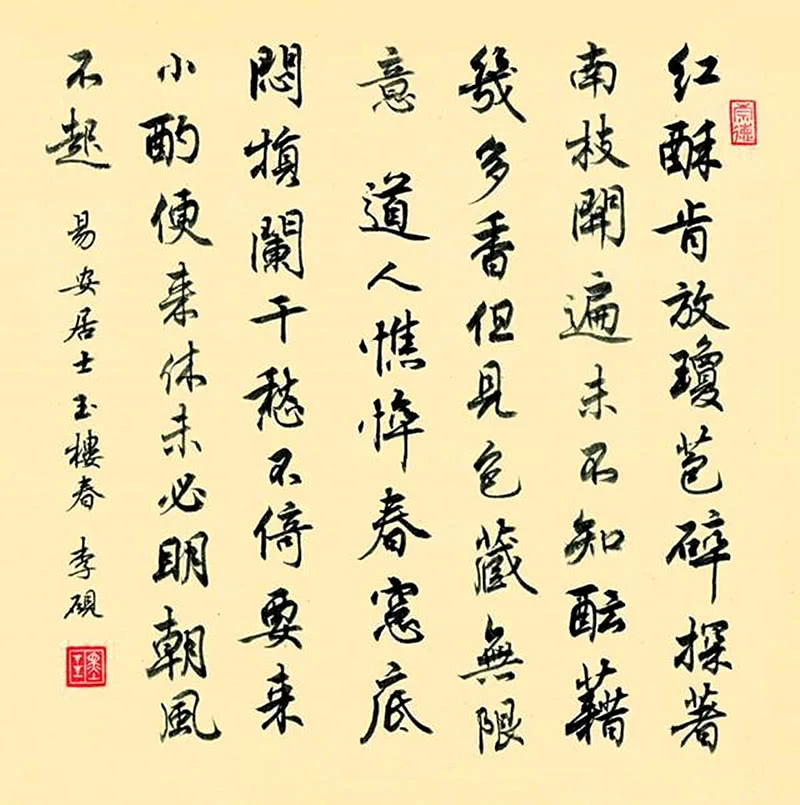 崇德
红酥肯放瓊苞碎探著
南枝開遍未不知酝藉
幾多香但見包藏無限
意 道人憔悴春窓底
悶損闌干愁不倚要来
小酌便来休未必明朝風
不起 易安居士玉樓春 李硯